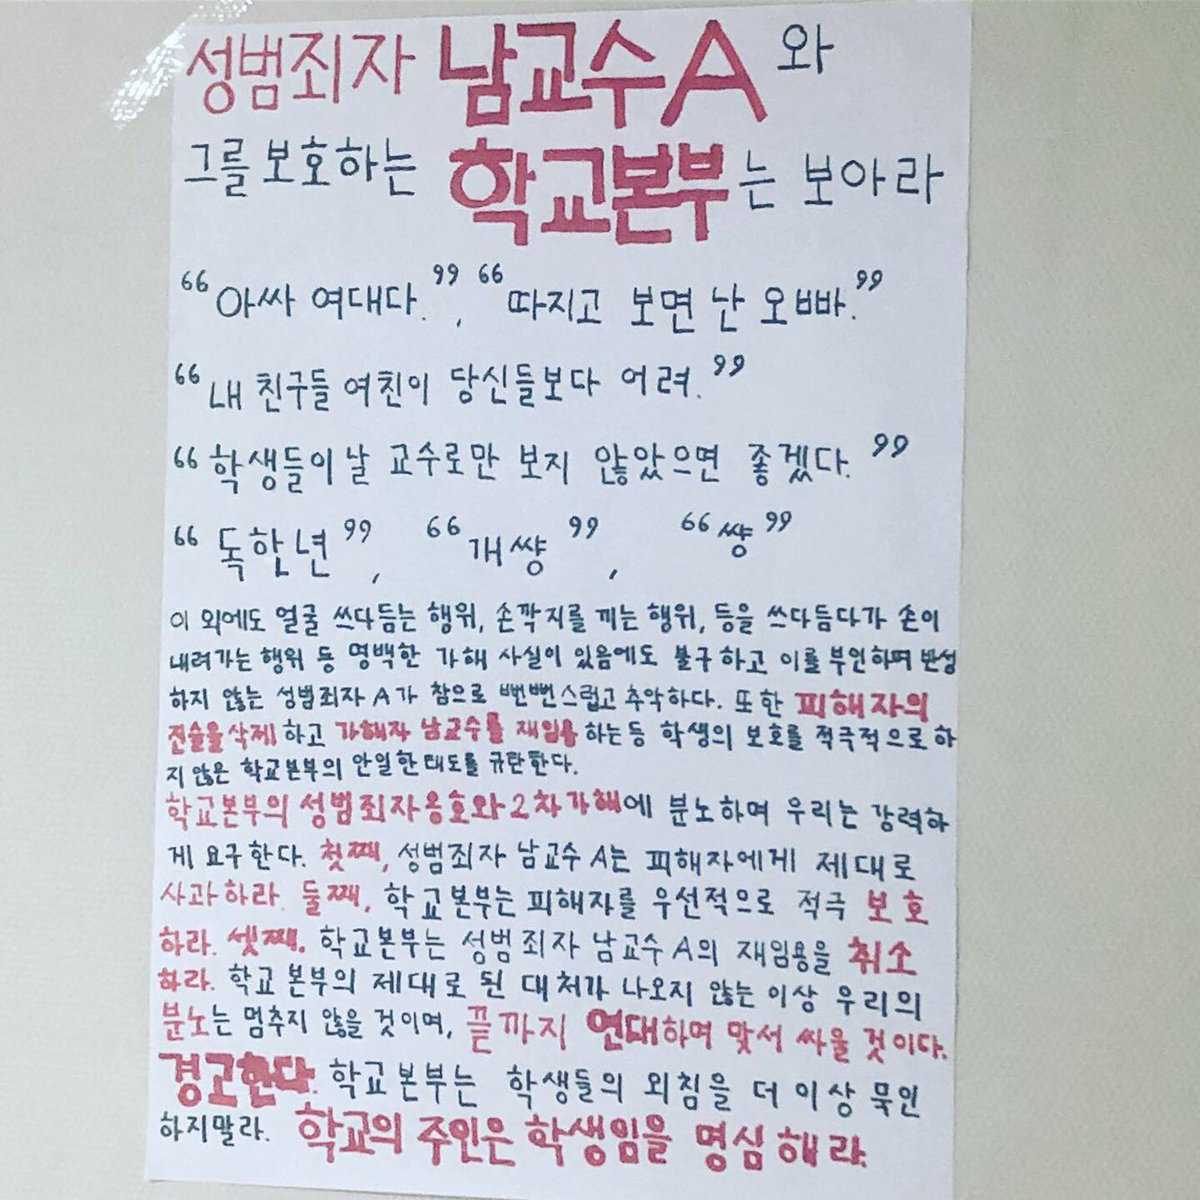 성범죄자 남교수A와
그를 보호하는 학교본부는 보아라
“아싸 여대다.”, “따지고 보면 난 오빠.”
“내 친구들 여친이 당신들보다 어려.”
“학생들이 날 교수로만 보지 않았으면 좋겠다.”
“독한년”, “개썅”, “썅”
이 외에도 얼굴 쓰다듬는 행위, 손깍지를 끼는 행위, 등을 쓰다듬다가 손이
내려가는 행위 등 명백한 가해 사실이 있음에도 불구하고 이를 부인하며 반성
하지 않는 성범죄자 A가 참으로 뻔뻔스럽고 추악하다. 또한 피해자의
진술을 삭제하고 가해자 남교수를 재임용하는 등 학생의 보호를 적극적으로 하
지 않은 학교본부의 안일한 태도를 규탄한다.
학교본부의 성범죄자옹호와 2차가해에 분노하며 우리는 강력하
게 요구한다. 첫째, 성범죄자 남교수 A는 피해자에게 제대로
사과하라. 둘째, 학교본부는 피해자를 우선적으로 적극 보호
하라. 셋째. 학교본부는 성범죄자 남교수 A의 재임용을 취소
하라. 학교 본부의 제대로 된 대처가 나오지 않는 이상 우리의
분노는 멈추지 않을 것이며, 끝까지 연대하며 맞서 싸울 것이다.
경고한다. 학교본부는 학생들의 외침을 더 이상 묵인
하지말라. 학교의 주인은 학생임을 명심해라.